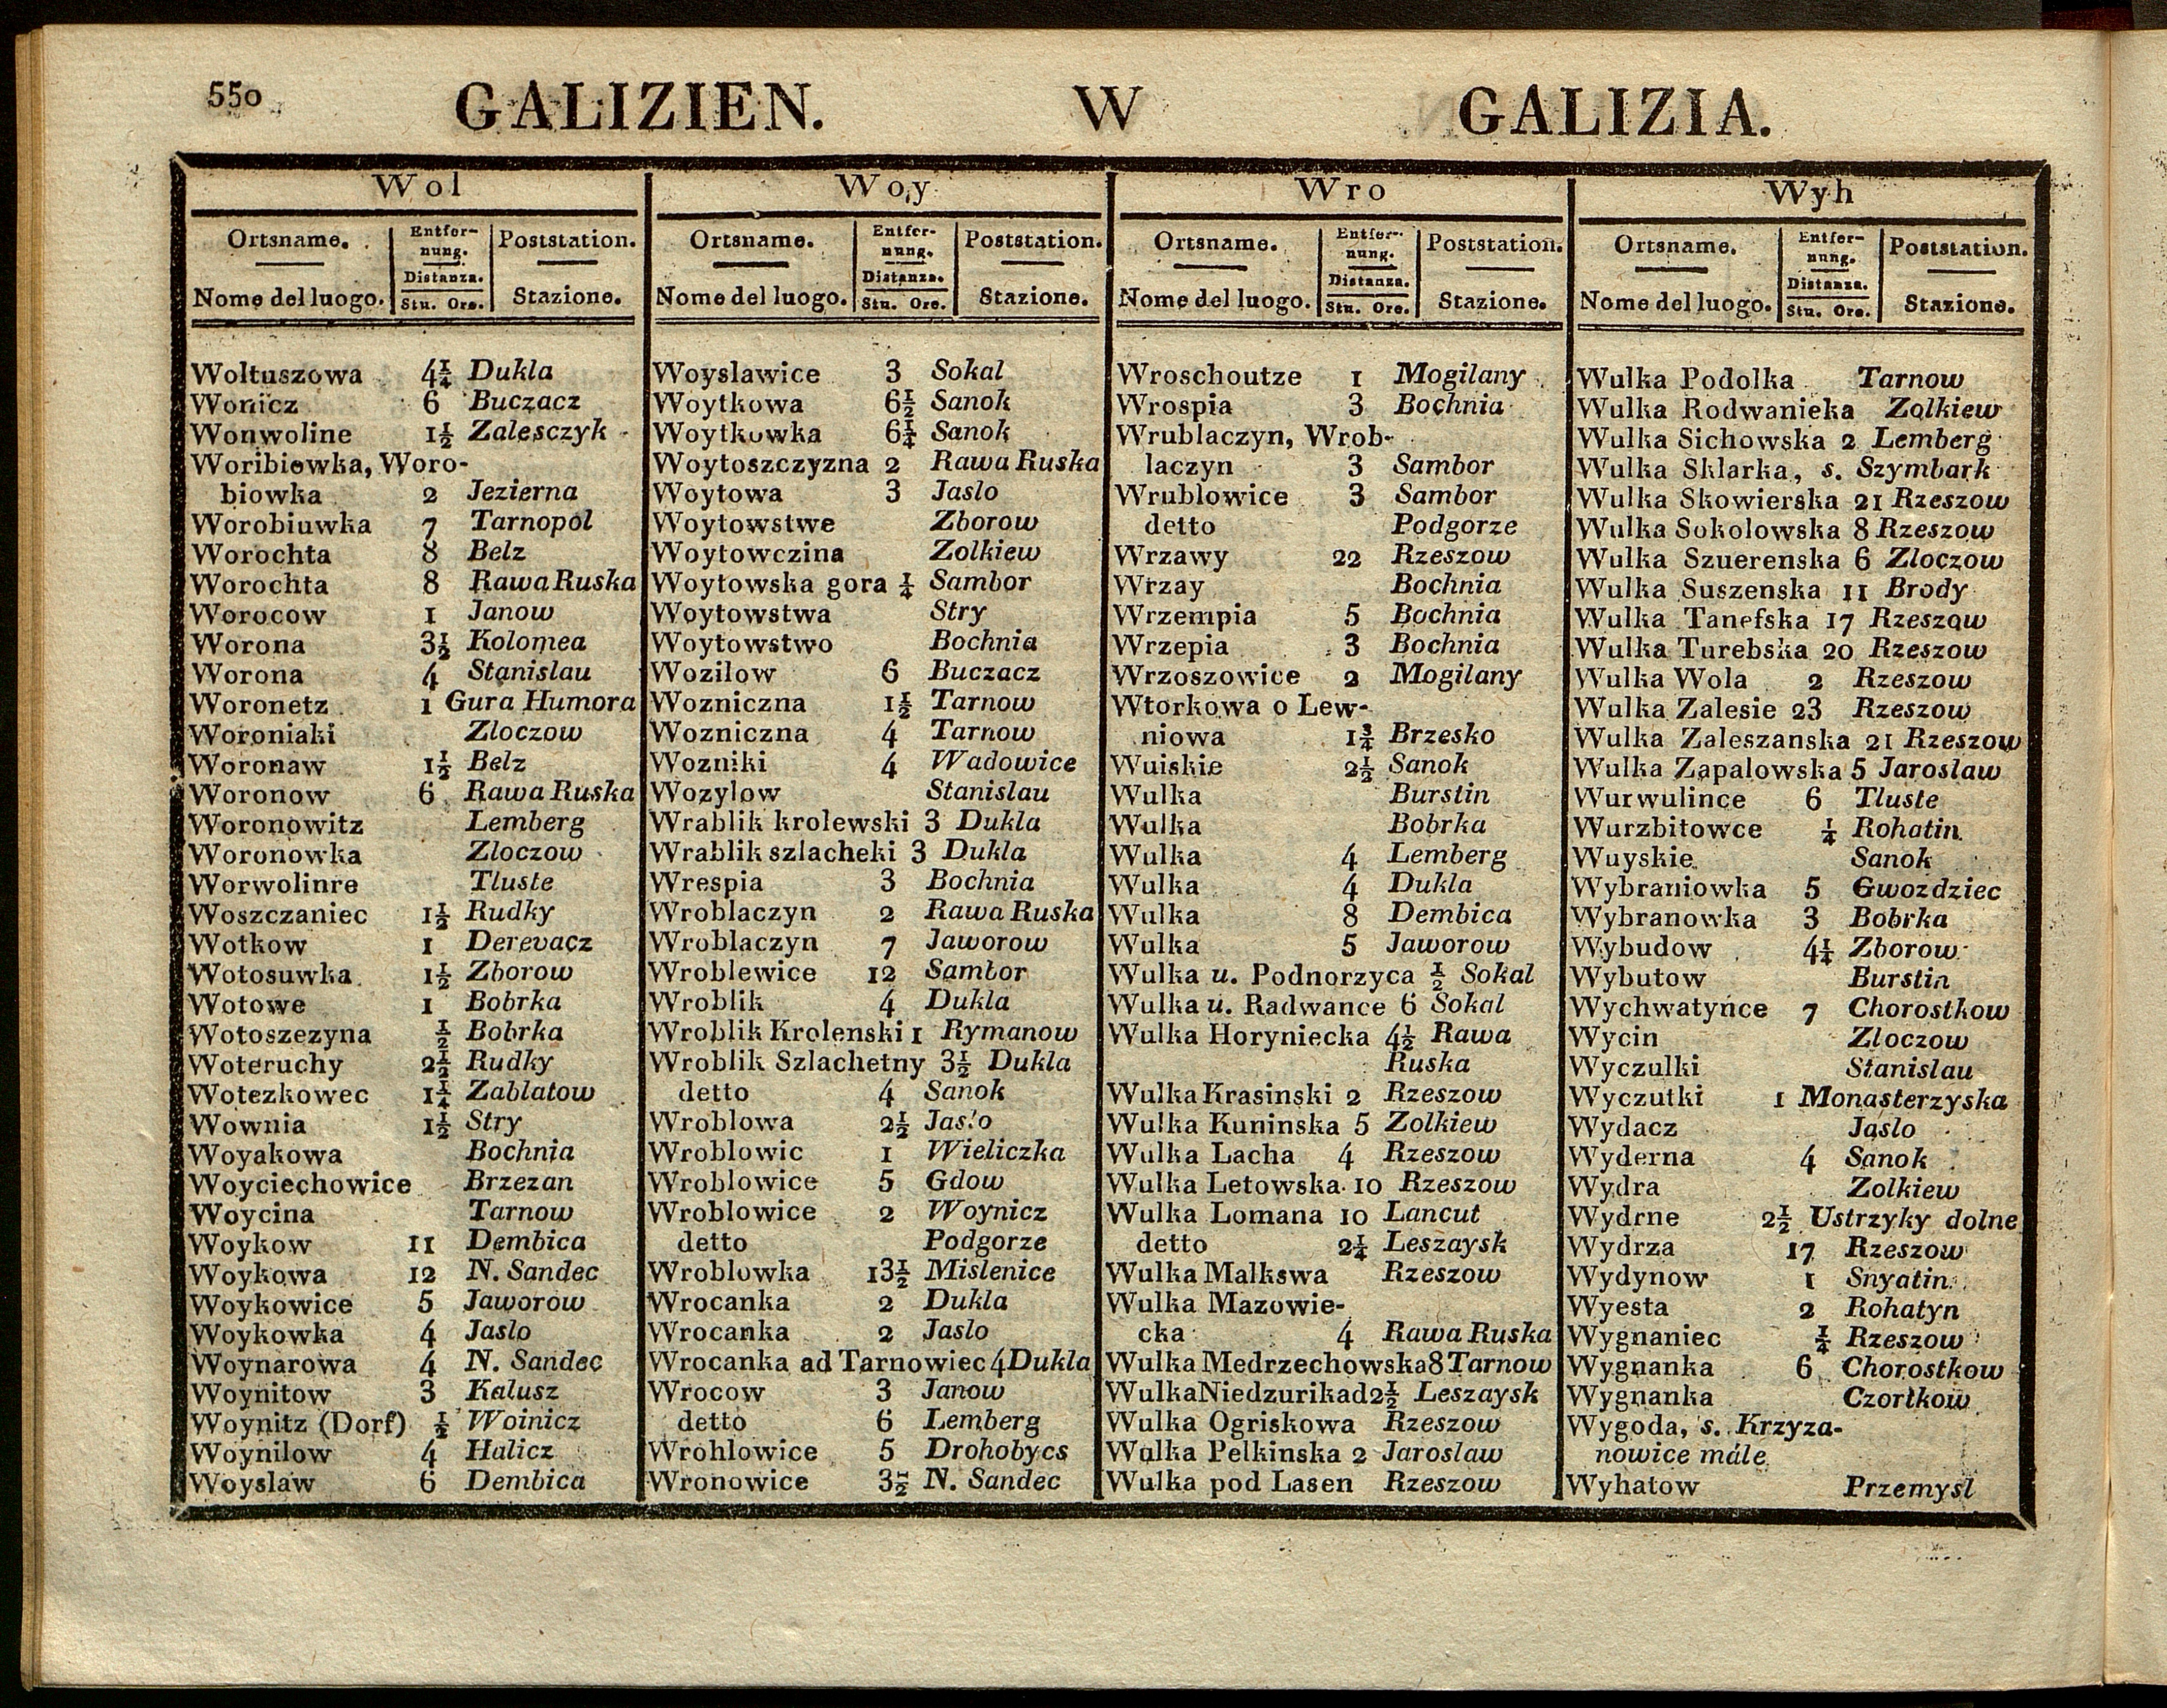 550 GALIZIEN. W GALIZIA.
Wol
Ortsname. Entfer- Poststation.
nung.
Distanza.
Nome del luogo. Stu. Ore. Stazione.
Woltuszowa 4¼ Dukla
Wonicz 6 Buczacz
Wonwoline 1½ Zalesczyk
Woribiowka, Woro-
biowka 2 Jezierna
Worobiuwka 7 Tarnopol
Worochta 8 Belz
Worochta 8 Rawa Ruska
Worocow 1 Janow
Worona 3½ Kolomea
Worona 4 Stanislau
Woronetz 1 Gura Humora
Woroniaki Zloczow
Woronaw 1½ Belz
Woronow 6 Rawa Ruska
Woronowitz Lemberg
Woronowka Zloczow
Worwolinre Tluste
Woszczaniec 1½ Rudky
Wotkow 1 Derevacz
Wotosuwka 1½ Zborow
Wotowe 1 Bobrka
Wotoszezyna ½ Bobrka
Woteruchy 2½ Rudky
Wotezkowec 1¼ Zablatow
Wownia 1½ Stry
Woyakowa Bochnia
Woyciechowice Brzezan
Woycina Tarnow
Woykow 11 Dembica
Woykowa 12 N. Sandec
Woykowice 5 Jaworow
Woykowka 4 Jaslo
Woynarowa 4 N. Sandec
Woynitow 3 Kalusz
Woynitz (Dorf) ½ Woinicz
Woynilow 4 Halicz
Woyslaw 6 Dembica
Woy
Ortsname. Entfer- Poststation.
nung.
Distanza.
Nome del luogo. Stu. Ore. Stazione.
Woyslawice 3 Sokal
Woytkowa 6½ Sanok
Woytkowka 6¼ Sanok
Woytoszczyzna 2 Rawa Ruska
Woytowa 3 Jaslo
Woytowstwe Zborow
Woytowczina Zolkiew
Woytowska gora ¼ Sambor
Woytowstwa Stry
Woytowstwo Bochnia
Wozilow 6 Buczacz
Wozniczna 1½ Tarnow
Wozniczna 4 Tarnow
Wozniki 4 Wadowice
Wozylow Stanislau
Wrablik krolewski 3 Dukla
Wrablik szlacheki 3 Dukla
Wrespia 3 Bochnia
Wroblaczyn 2 Rawa Ruska
Wroblaczyn 7 Jaworow
Wroblewice 12 Sambor
Wroblik 4 Dukla
Wroblik Krolenski 1 Rymanow
Wroblik Szlachetny 3½ Dukla
detto 4 Sanok
Wroblowa 2½ Jaslo
Wroblowic 1 Wieliczka
Wroblowice 5 Gdow
Wroblowice 2 Woynicz
detto Podgorze
Wroblowka 13½ Mislenice
Wrocanka 2 Dukla
Wrocanka 2 Jaslo
Wrocanka ad Tarnowiec 4 Dukla
Wrocow 3 Janow
detto 6 Lemberg
Wrohlowice 5 Drohobycs
Wronowice 3½ N. Sandec
Wro
Ortsname. Entfer- Poststation.
nung.
Distanza.
Nome del luogo. Stu. Ore. Stazione.
Wroschoutze 1 Mogilany
Wrospia 3 Bochnia
Wrublaczyn, Wrob-
laczyn 3 Sambor
Wrublowice 3 Sambor
detto Podgorze
Wrzawy 22 Rzeszow
Wrzay Bochnia
Wrzempia 5 Bochnia
Wrzepia 3 Bochnia
Wrzoszowice 2 Mogilany
Wtorkowa o Lew-
niowa 1¾ Brzesko
Wuiskie 2½ Sanok
Wulka Burstin
Wulka Bobrka
Wulka 4 Lemberg
Wulka 4 Dukla
Wulka 8 Dembica
Wulka 5 Jaworow
Wulka u. Podnorzyca ½ Sokal
Wulka u. Radwance 6 Sokal
Wulka Horyniecka 4½ Rawa
Ruska
Wulka Krasinski 2 Rzeszow
Wulka Kuninska 5 Zolkiew
Wulka Lacha 4 Rzeszow
Wulka Letowska 10 Rzeszow
Wulka Lomana 10 Lancut
detto 2¼ Leszaysk
Wulka Malkswa Rzeszow
Wulka Mazowie-
cka 4 Rawa Ruska
Wulka Medrzechowska 8 Tarnow
Wulka Niedzurikad 2½ Leszaysk
Wulka Ogriskowa Rzeszow
Wulka Pelkinska 2 Jaroslaw
Wulka pod Lasen Rzeszow
Wyh
Ortsname. Entfer- Poststation.
nung.
Distanza.
Nome del luogo. Stu. Ore. Stazione.
Wulka Podolka Tarnow
Wulka Rodwanieka Zolkiew
Wulka Sichowska 2 Lemberg
Wulka Sklarka, s. Szymbark
Wulka Skowierska 21 Rzeszow
Wulka Sokolowska 8 Rzeszow
Wulka Szuerenska 6 Zloczow
Wulka Suszenska 11 Brody
Wulka Tanefska 17 Rzeszow
Wulka Turebska 20 Rzeszow
Wulka Wola 2 Rzeszow
Wulka Zalesie 23 Rzeszow
Wulka Zaleszanska 21 Rzeszow
Wulka Zapalowska 5 Jaroslaw
Wurwulince 6 Tluste
Wurzbitowce ¼ Rohatin
Wuyskie Sanok
Wybraniowka 5 Gwozdziec
Wybranowka 3 Bobrka
Wybudow 4¼ Zborow
Wybutow Burstin
Wychwatyńce 7 Chorostkow
Wycin Zloczow
Wyczulki Stanislau
Wyczutki 1 Monasterzyska
Wydacz Jaslo
Wyderna 4 Sanok
Wydra Zolkiew
Wydrne 2½ Ustrzyky dolne
Wydrza 17 Rzeszow
Wydynow 1 Snyatin
Wyesta 2 Rohatyn
Wygnaniec ¼ Rzeszow
Wygnanka 6 Chorostkow
Wygnanka Czortkow
Wygoda, s. Krzyza-
nowice màle
Wyhatow Przemysl